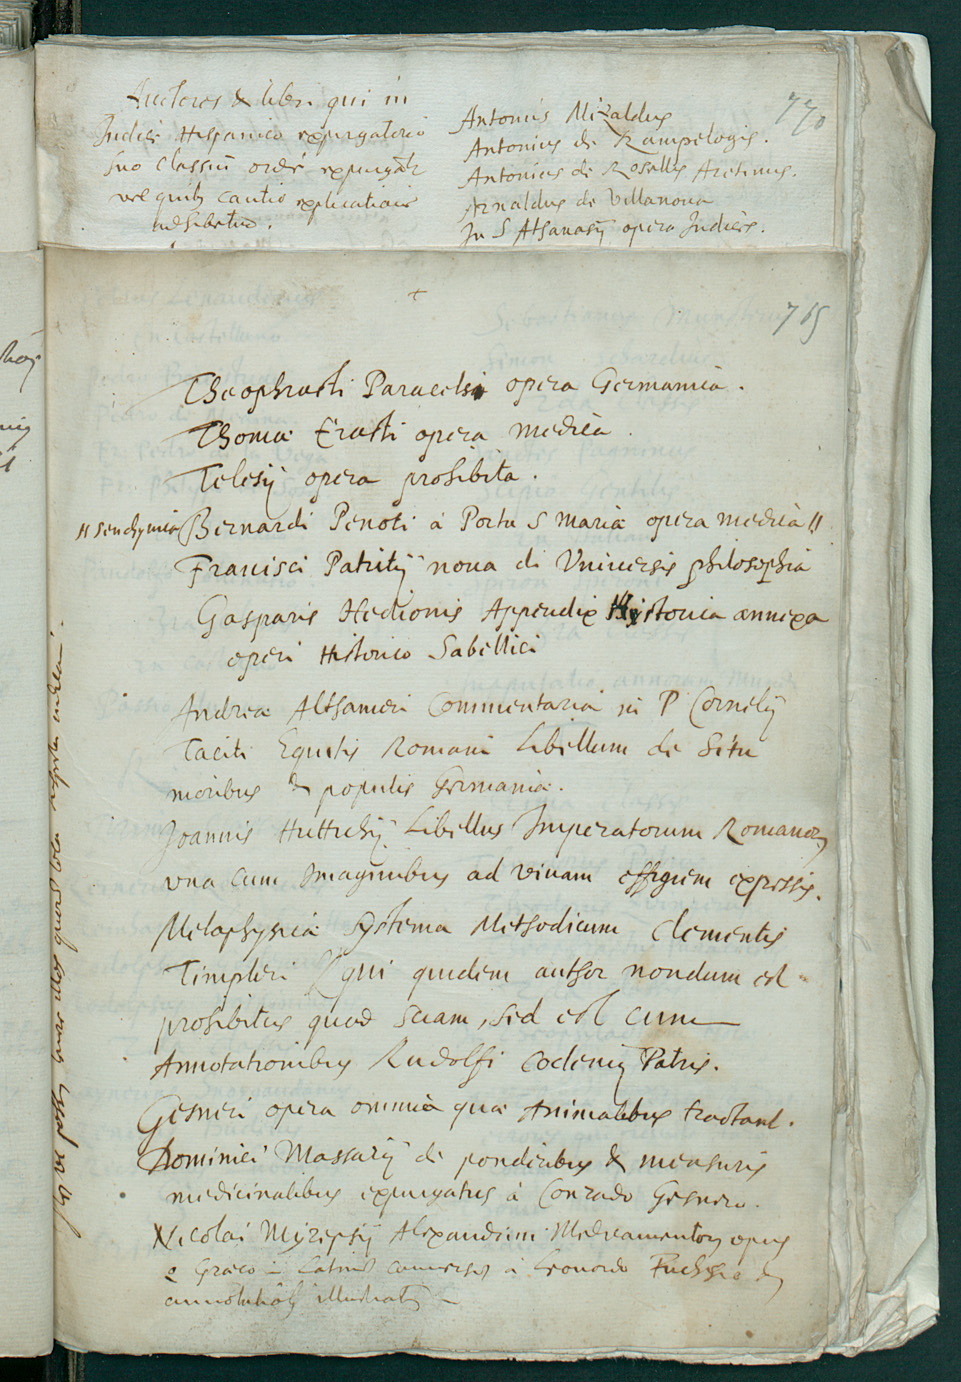 Auctores & libri qui in
Indice Hispanico expurgatorio
suo classiu ordé expurgatr
vel quib cautio explicationis
adhibetur.
770
Antonius Mizaldus
Antonius de Rampelogis.
Antonius de Rosellis Aretinus.
Arnaldus de Villanova
In S Athanasij opera Indices.
765
Theophrasti Paracelsi opera Germanica.
Thomæ Erasti opera medica.
Telesij opera prohibita.
Bernardi Penoti à Portu S Mariæ opera medica //
Francisci Patritij nova de Vniversis philosophia
Gasparis Hedionis Appendix Historica annexa
operi Historico Sabellici
Andreæ Althameri Commentaria in P Cornelij
Taciti Equitis Romani Libellum de Situ
moribus & populis Germaniæ.
Joannis Huttichij Libellus Imperatorum Romanor
vna cum Imaginibus ad vivam effigiem expressis.
Metaphysicæ Systema Methodicum Clementis
Timpleri qui quidem author nondum est
prohibitus quod sciam, sed est cum
Annotationibus Rudolfi Goclenij Patris.
Gesneri opera omnia quæ Animalibus tractant.
Dominici Massarij de ponderibus & mensuris
medicinalibus expurgatus à Conrado Gesnero.
Nicolai Myrepsij Alexandrini Medicamentor opus
e Græco in Latinu conversus à Leonardo Fuchsio &
annotationib illustratu